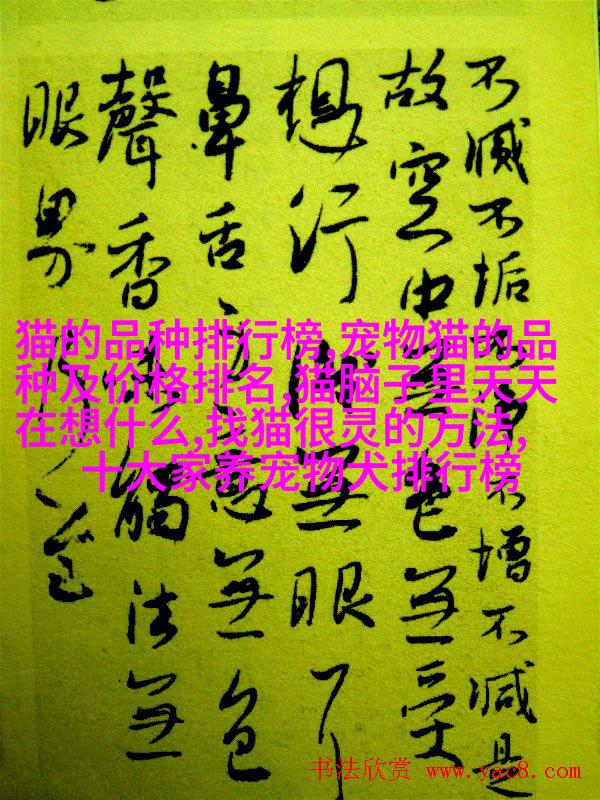 不滅不垢不淨不增不減是
故空中無色無受
想行識無眼耳
鼻舌身意無色
聲香味觸法無
眼界
猫的品种排行榜,宠物猫的品
种及价格排名,猫脑子里天天
在想什么,找猫很灵的方法,
十大家养宠物犬排行榜
书法欣赏 www.yac8.com